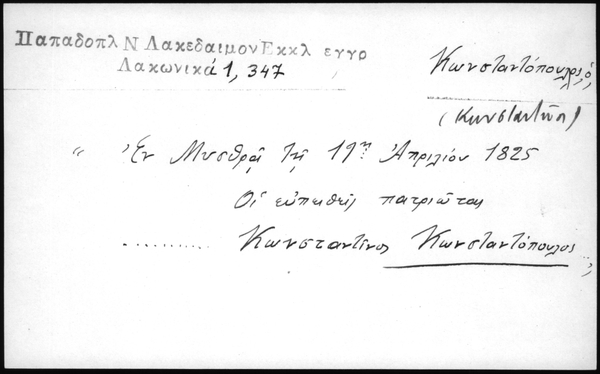 Παπαδοπλ Ν Λακεδαιμον Εκκλ εγγρ
Λακωνικά 1, 347
Κωνσταντόπουλος, ὁ
(Κωνσταντῖνος)
“ Ἐν Μυσθρᾷ τῇ 19ῃ Ἀπριλίου 1825
Οἱ εὐπειθεῖς πατριῶται
.......... Κωνσταντῖνος Κωνσταντόπουλος „